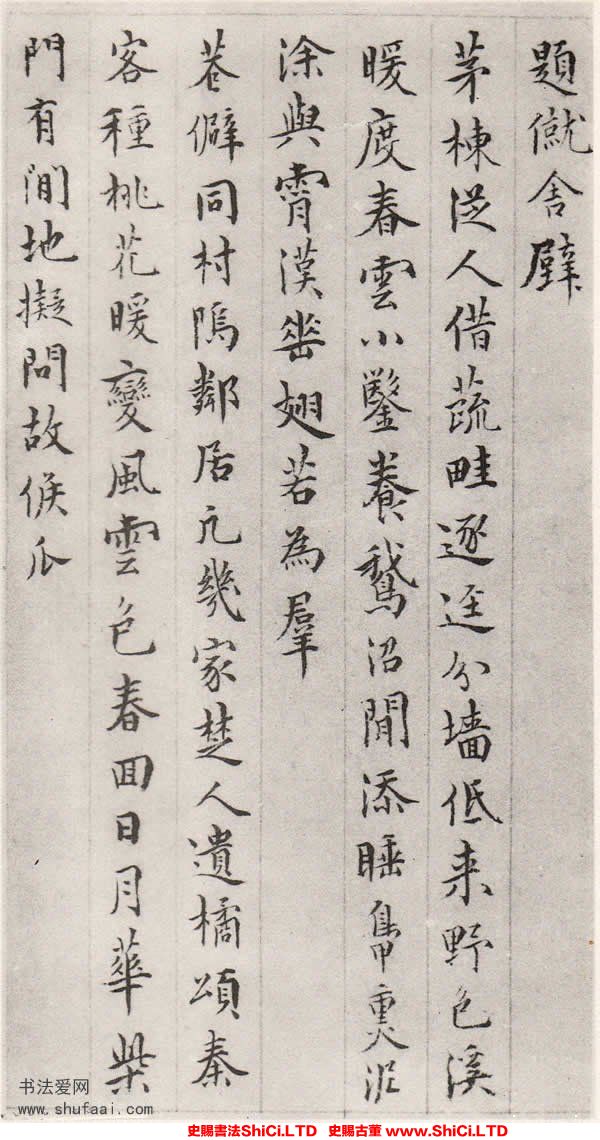 題僦舍壁
茅棟從人借蔬畦逐逕分墻低来野色溪
暖度春雲小鑿養鵝沼閒添睡鴨熏泥
涂與霄漢翅若為羣
巷僻同村隖鄰居凢幾家楚人遺橘頌秦
客種桃花暖變風雲色春回日月華柴
門有閒地擬問故侯瓜
书法爱网
www.shufaai.com
史賜書法ShiCi.LTD 史賜古董 www.ShiCi.LTD